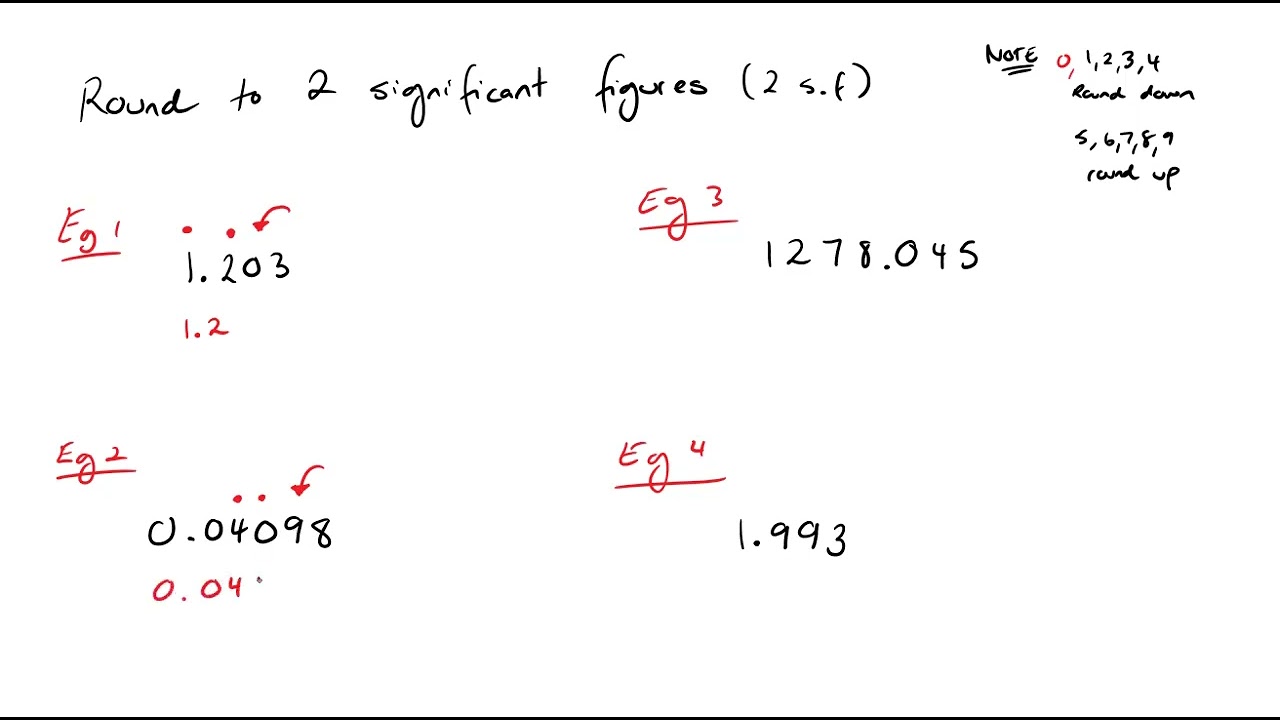 Round to 2 significant figures (2 s.f)
NOTE 0, 1, 2, 3, 4
Round down
5, 6, 7, 8, 9
round up
Eg 1
1.203
1.2
Eg 2
0.04098
0.04
Eg 3
1278.045
Eg 4
1.993